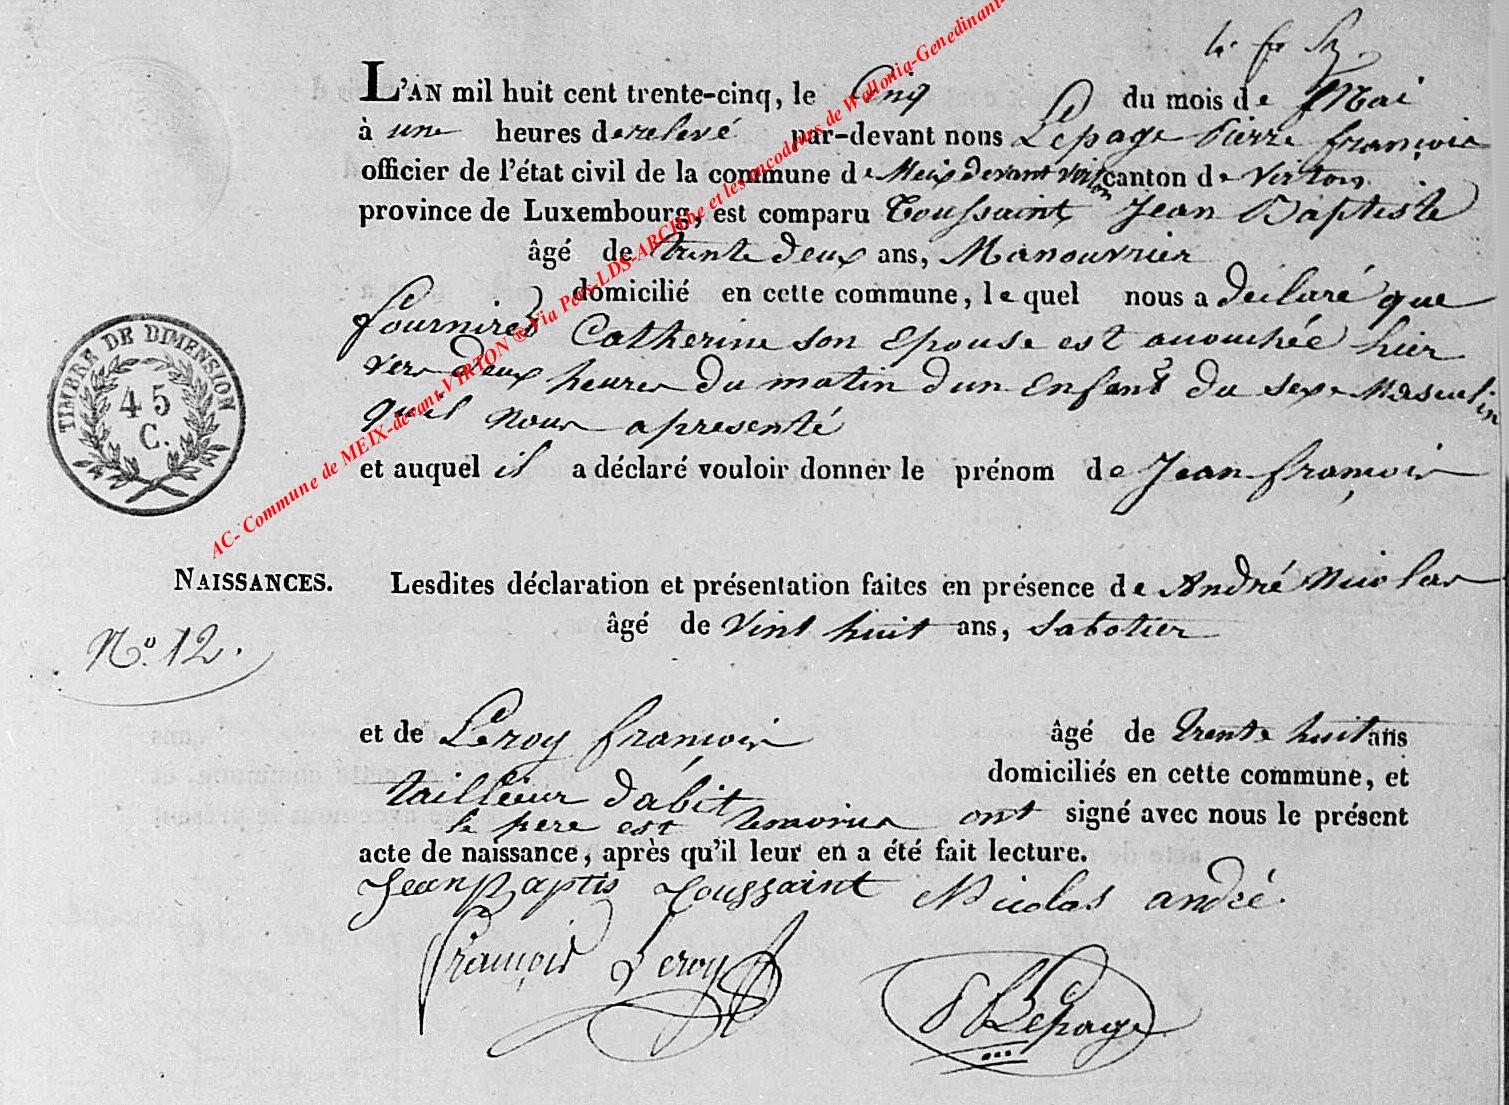 L'AN mil huit cent trente-cinq, le Cinq du mois de Mai
à une heures de relevé par-devant nous Lepage Pierre françois
officier de l'état civil de la commune de Meix devant virton canton de virton
province de Luxembourg, est comparu Toussaint Jean Baptiste
âgé de trente deux ans, Manouvrier
domicilié en cette commune, lequel nous a déclaré que
fournirei Catherine son Epouse est acouchée hier
vers deux heures du matin d'un Enfant du sexe Masculin
quil nous apresenté
et auquel il a déclaré vouloir donner le prénom de Jean françois
NAISSANCES.
Lesdites déclaration et présentation faites en présence de André Nicolas
âgé de vint huit ans, sabotier
No. 12.
et de Leroy françois âgé de trente huit ans
tailleur dabit domiciliés en cette commune, et
le pere est temoins ont signé avec nous le présent
acte de naissance, après qu'il leur en a été fait lecture.
Jean Baptis Toussaint Nicolas andré.
françois Leroy
P Lepage
TIMBRE DE DIMENSION
45
C.
AC- Commune de MEIX-devant-VIRTON ® Via Pers-LDS-ARCHbe et les encodeurs de Wallonia-Genedinant-